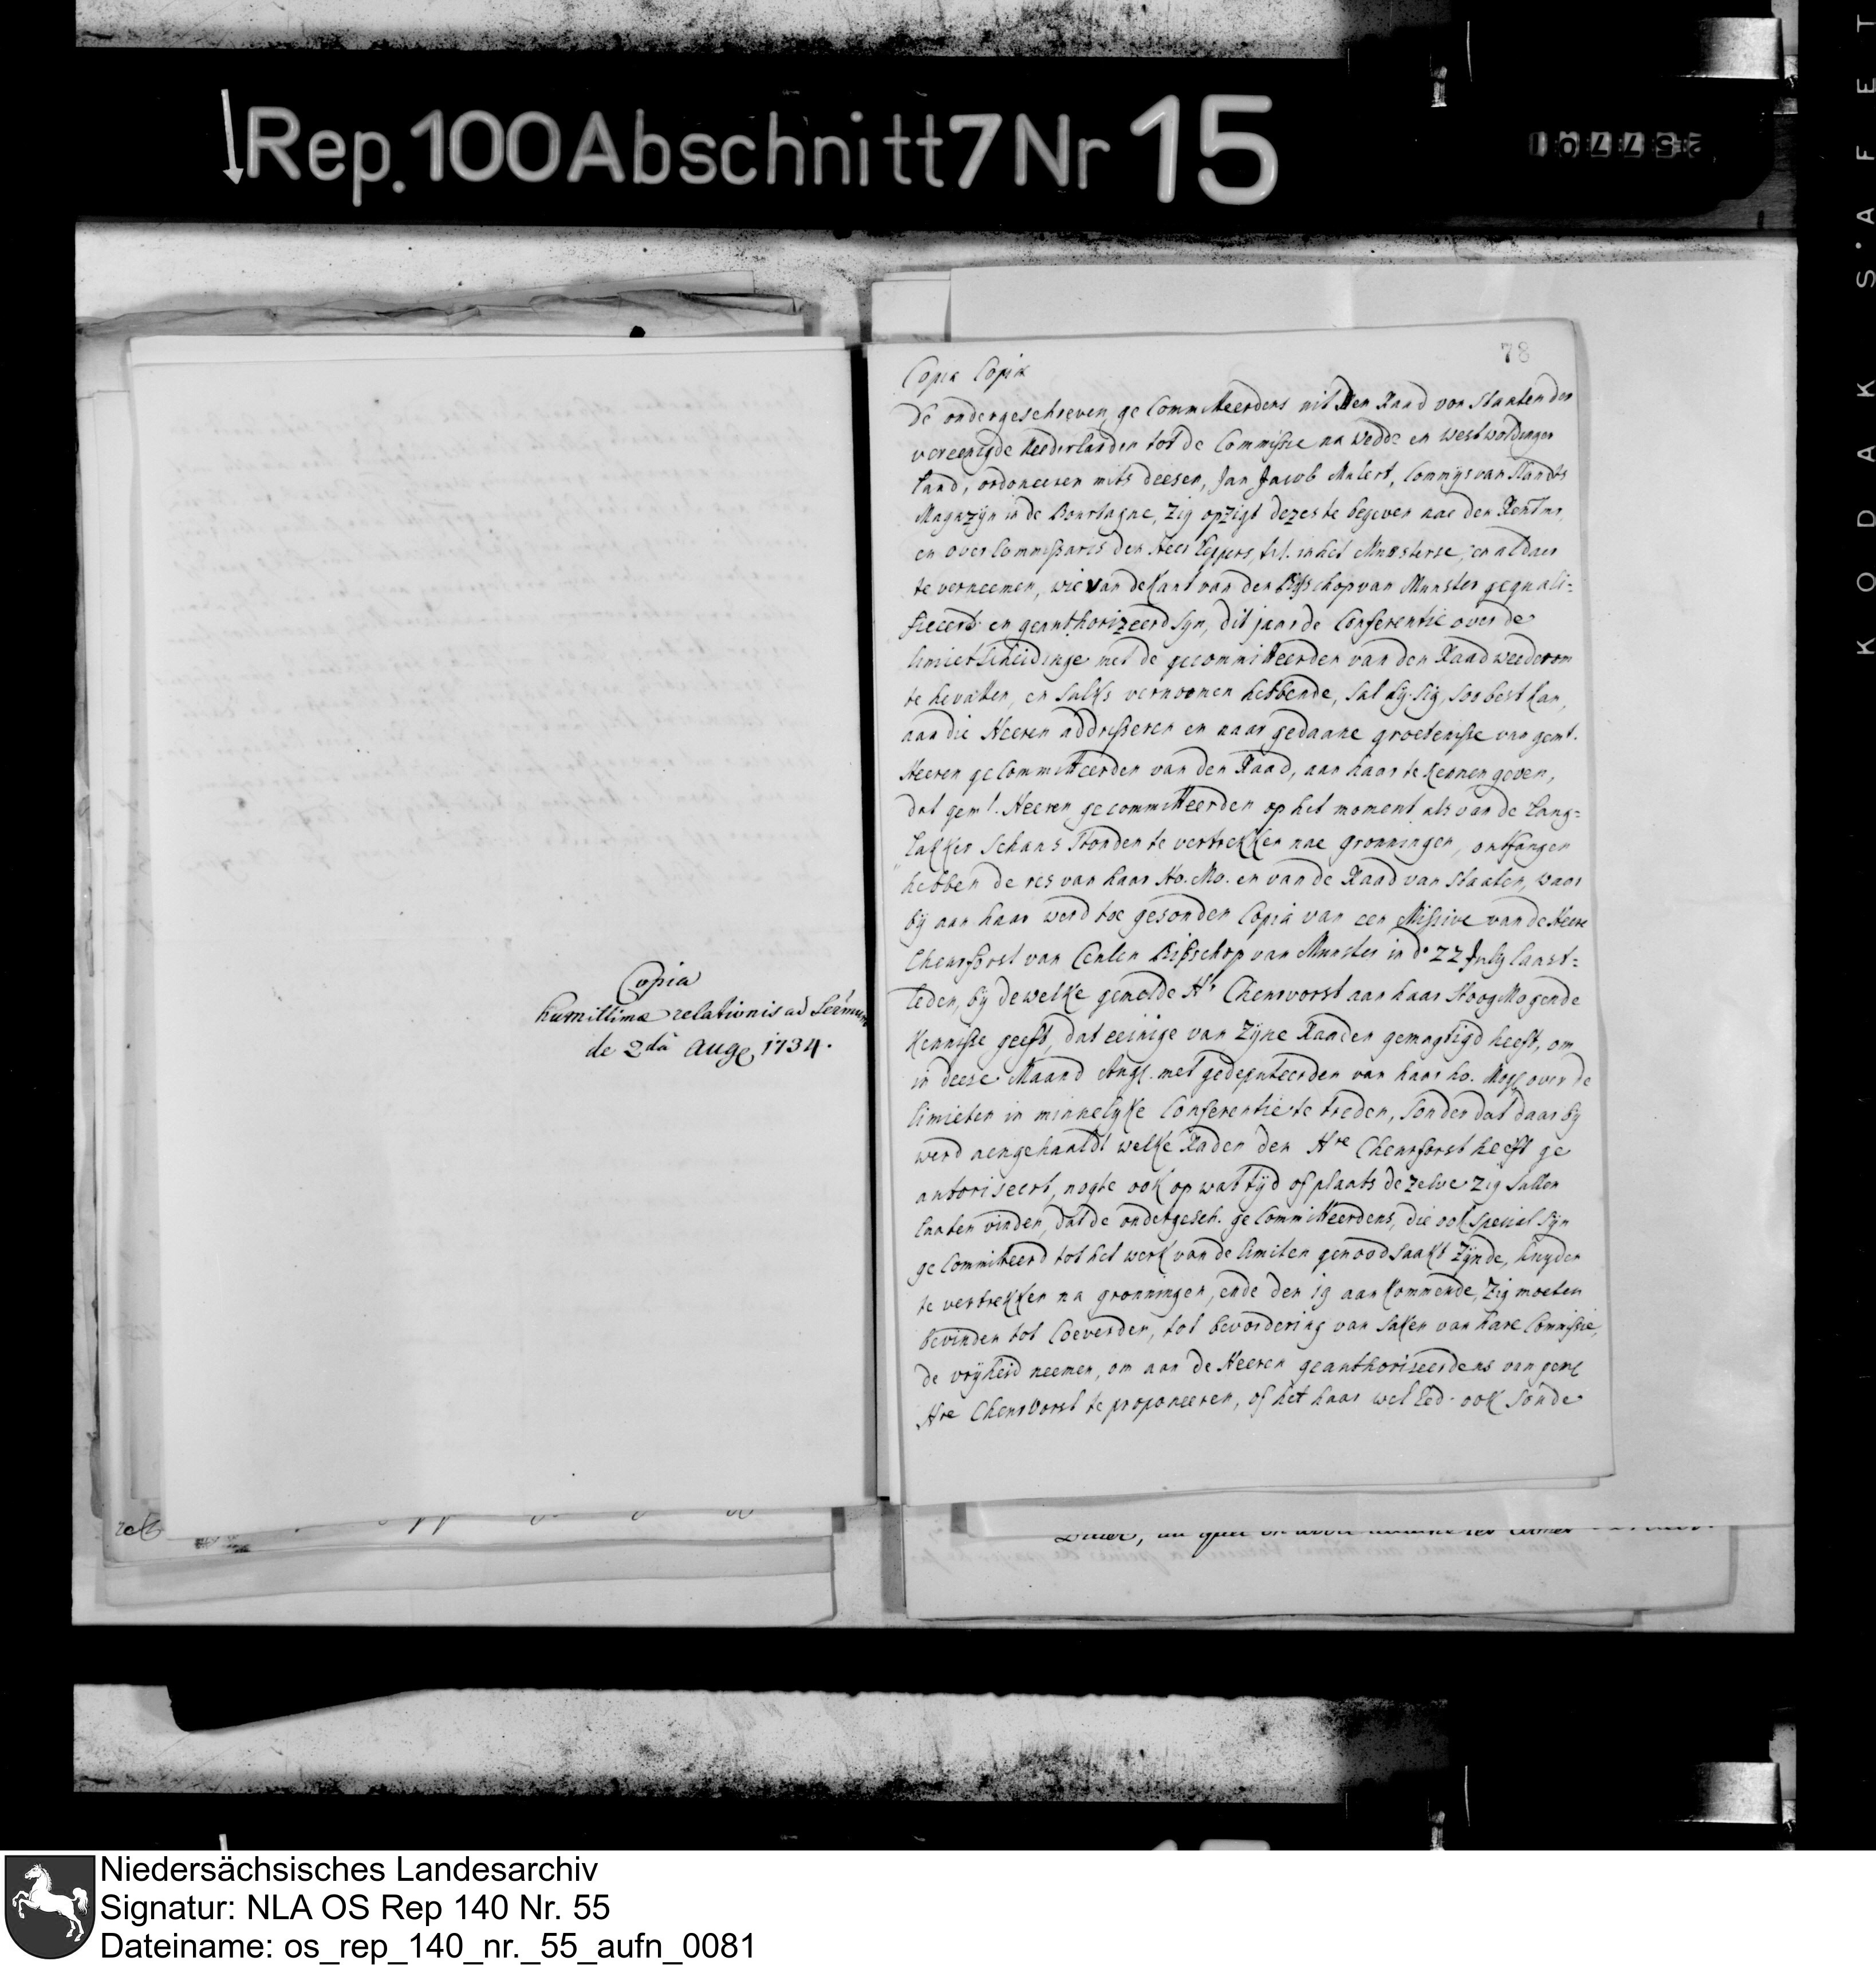 Rep. 100 Abschnitt 7 Nr 15
KODAK S.AFET
Copia
humillimæ relationis ad Serm̃um
de 2dâ Aug: 1734.
78
Copia Copiæ
De ondergeschreven gecommitteerdens uit den Raad van Staaten der
vereenigde Nederlanden tot de Commissie na Wedde en Westwoldinger
land, ordoneeren mits deesen, Jan Jacob Mulert, Commijs van 'slandts
Magazijn in de Bourtagne, zig opzigt dezes te begeven nae den Rentmr.
en over Commissaris den Heer in het Munsterse, en aldaer
te verneemen, wie van de Kant van den Bisschop van Munster gequali-
ficeerd en geauthorizeerd syn, dit jaar de Conferentie over de
limietscheidinge met de gecommitteerden van den Raad weederom
te hevatten, en sulks vernoomen hebbende, sal hy sig, soo best kan,
aan die Heeren addresseren en naar gedaane groetenisse van gemt.
Heeren gecommitteerden van den Raad, aan haar te kennen geven,
dat gemt. Heeren gecommitteerden op het moment als van de Lang-
lakker Schans stonden te vertrekken nae Gronningen, ontfangen
hebben de res van haar Ho. Mo. en van de Raad van Staaten, waar
by aan haar werd toe gesonden Copia van een Missive van de Heere
Cheurforst van Ceulen Bisschop van Munster in do 22 July laast-
leden, by dewelke gemelde Hr Cheurvorst aan haar Hoog Mogende
kennisse geeft, dat eeinige van Zijne Raaden gemagtigd heeft, om
in deese Maand Aug. met gedeputeerden van haar ho. Mog. over de
limieten in minnelyke Conferentie te treden, sonder dat daar by
werd aengehaaldt welke Raden den Hre Cheurforst heeft ge
autoriseert, nogte ook op wat tijd of plaats dezelve zig sullen
laaten vinden, dat de ondergesch. gecommitteerdens, die ook speciael sijn
gecommitteerd tot het werk van de limiten genoodsaakt zijnde, huyden
te vertrekken na Gronningen, ende den 19 aankommende, zig moeten
bevinden tot Coeverden, tot bevordering van saken van hare Commissie,
de vrijheid neemen, om aan de Heeren geauthoriseerdens van gem:
Hre Cheurvorst te proponeeren, of het haar wel Ed. ook sonde
Niedersächsisches Landesarchiv
Signatur: NLA OS Rep 140 Nr. 55
Dateiname: os_rep_140_nr._55_aufn_0081